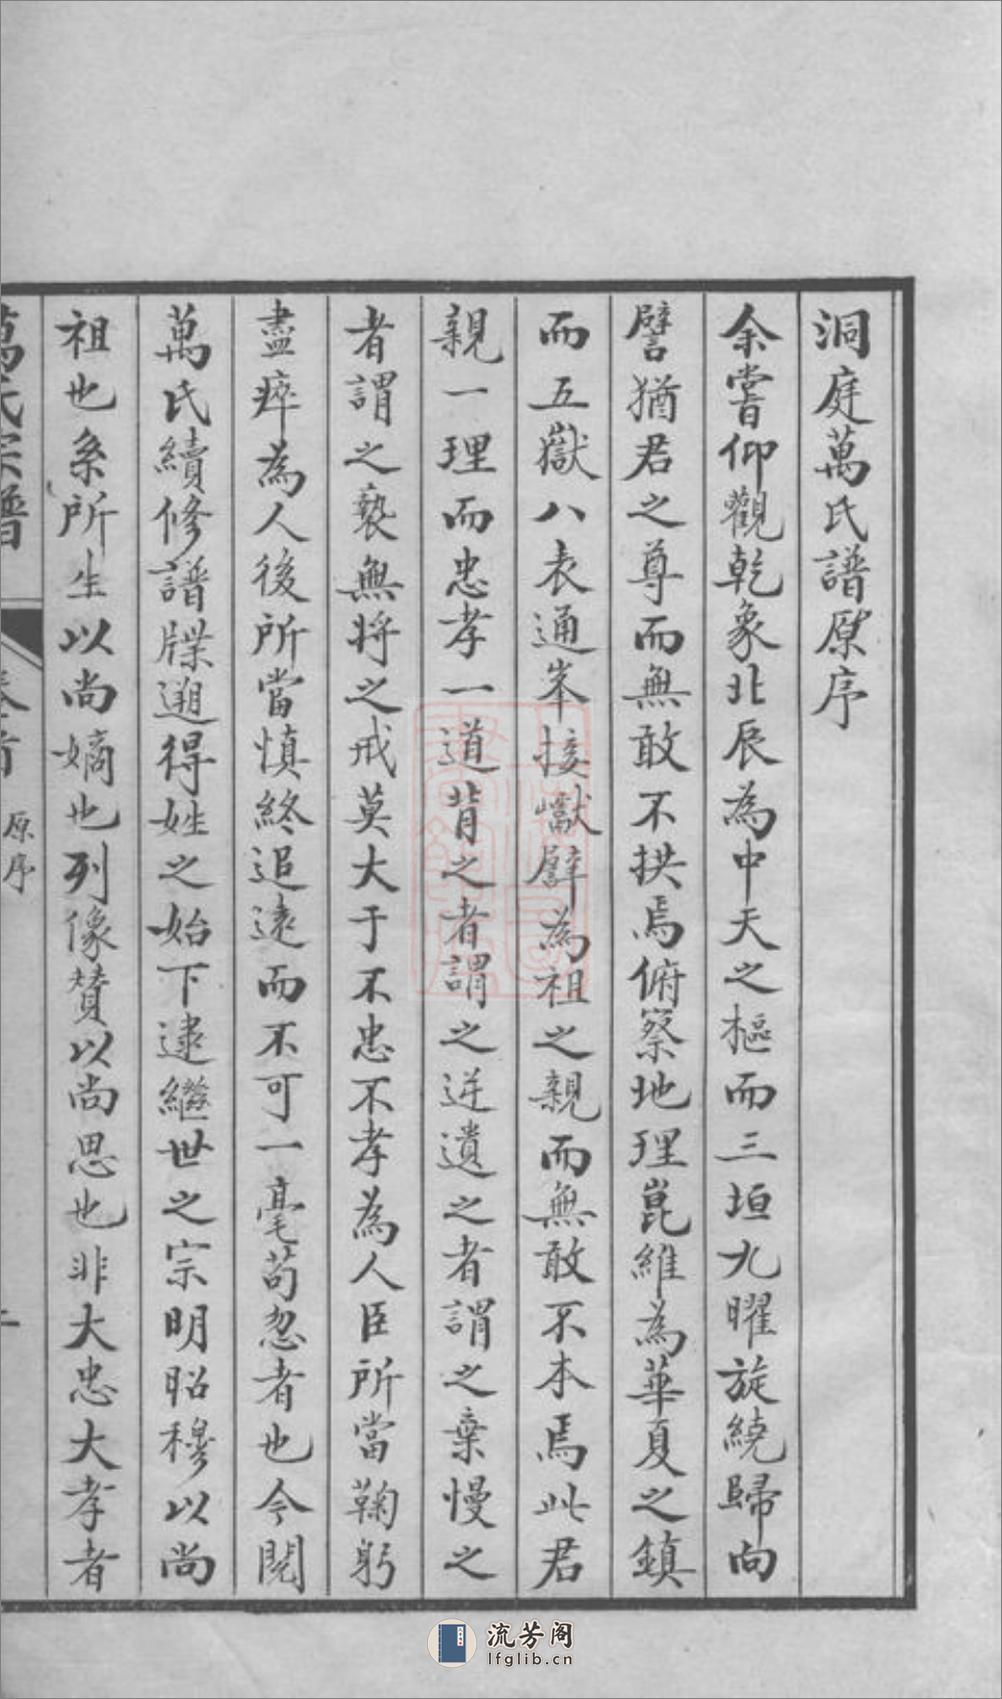 洞庭萬氏譜原序
余嘗仰觀乾象北辰為中天之樞而三垣九曜旋繞歸向
譬猶君之尊而無敢不拱焉俯察地理崑維為華夏之鎮
而五嶽八表通峯接巘譬為祖之親而無敢不本焉此君
親一理而忠孝一道背之者謂之逆遺之者謂之棄慢之
者謂之褻無將之戒莫大于不忠不孝為人臣所當鞠躬
盡瘁為人後所當慎終追遠而不可一毫苟忽者也今閱
萬氏續修譜牒遡得姓之始下逮繼世之宗明昭穆以尚
祖也系所生以尚嫡也列像贊以尚思也非大忠大孝者
萬氏宗譜
卷首
原序
流芳阁
lfglib.cn